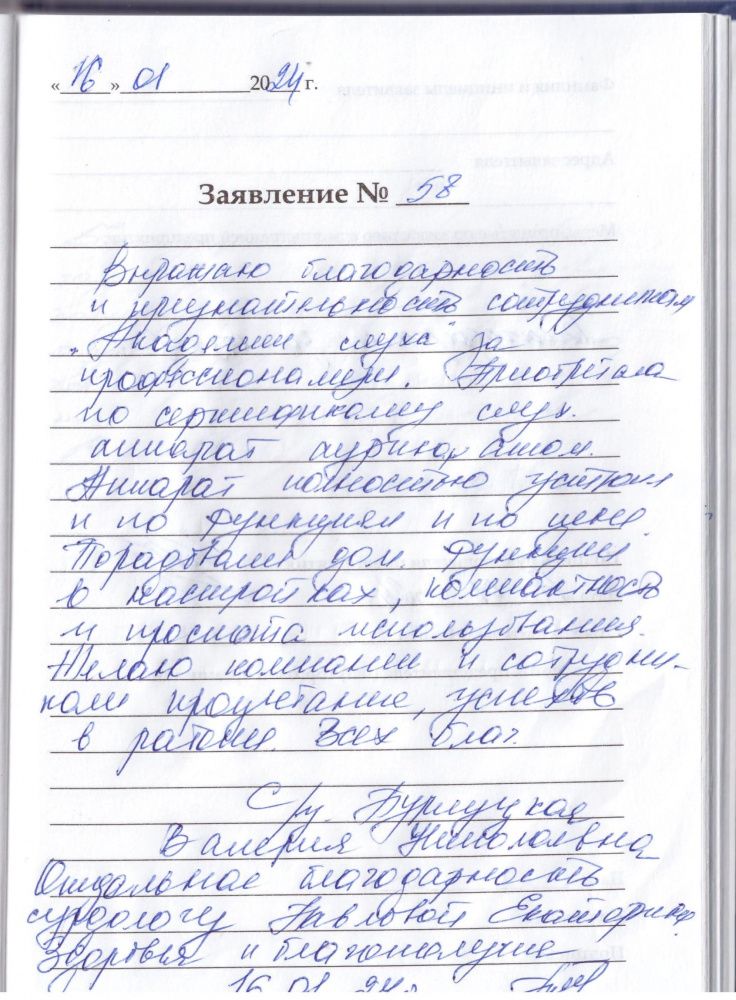 «16» 01 2024 г.
Заявление № 58
Выражаю благодарность
и признательность сотрудникам
"Академии слуха" за
профессионализм. Приобретала
по сертификату слух.
аппарат аурика,
Аппарат полностью устроил
и по функциям и по цене.
Порадовали доп. функции
в настройках, компактность
и простота использования.
Желаю компании и сотрудни-
кам процветание, успехов
в работе. Всех благ.
С/у. Бурлуцкая
Валерия Николаевна
Отдельное благодарность
сурдологу Павловой Екатерине
Здоровья и благополучие
16.01.24г.